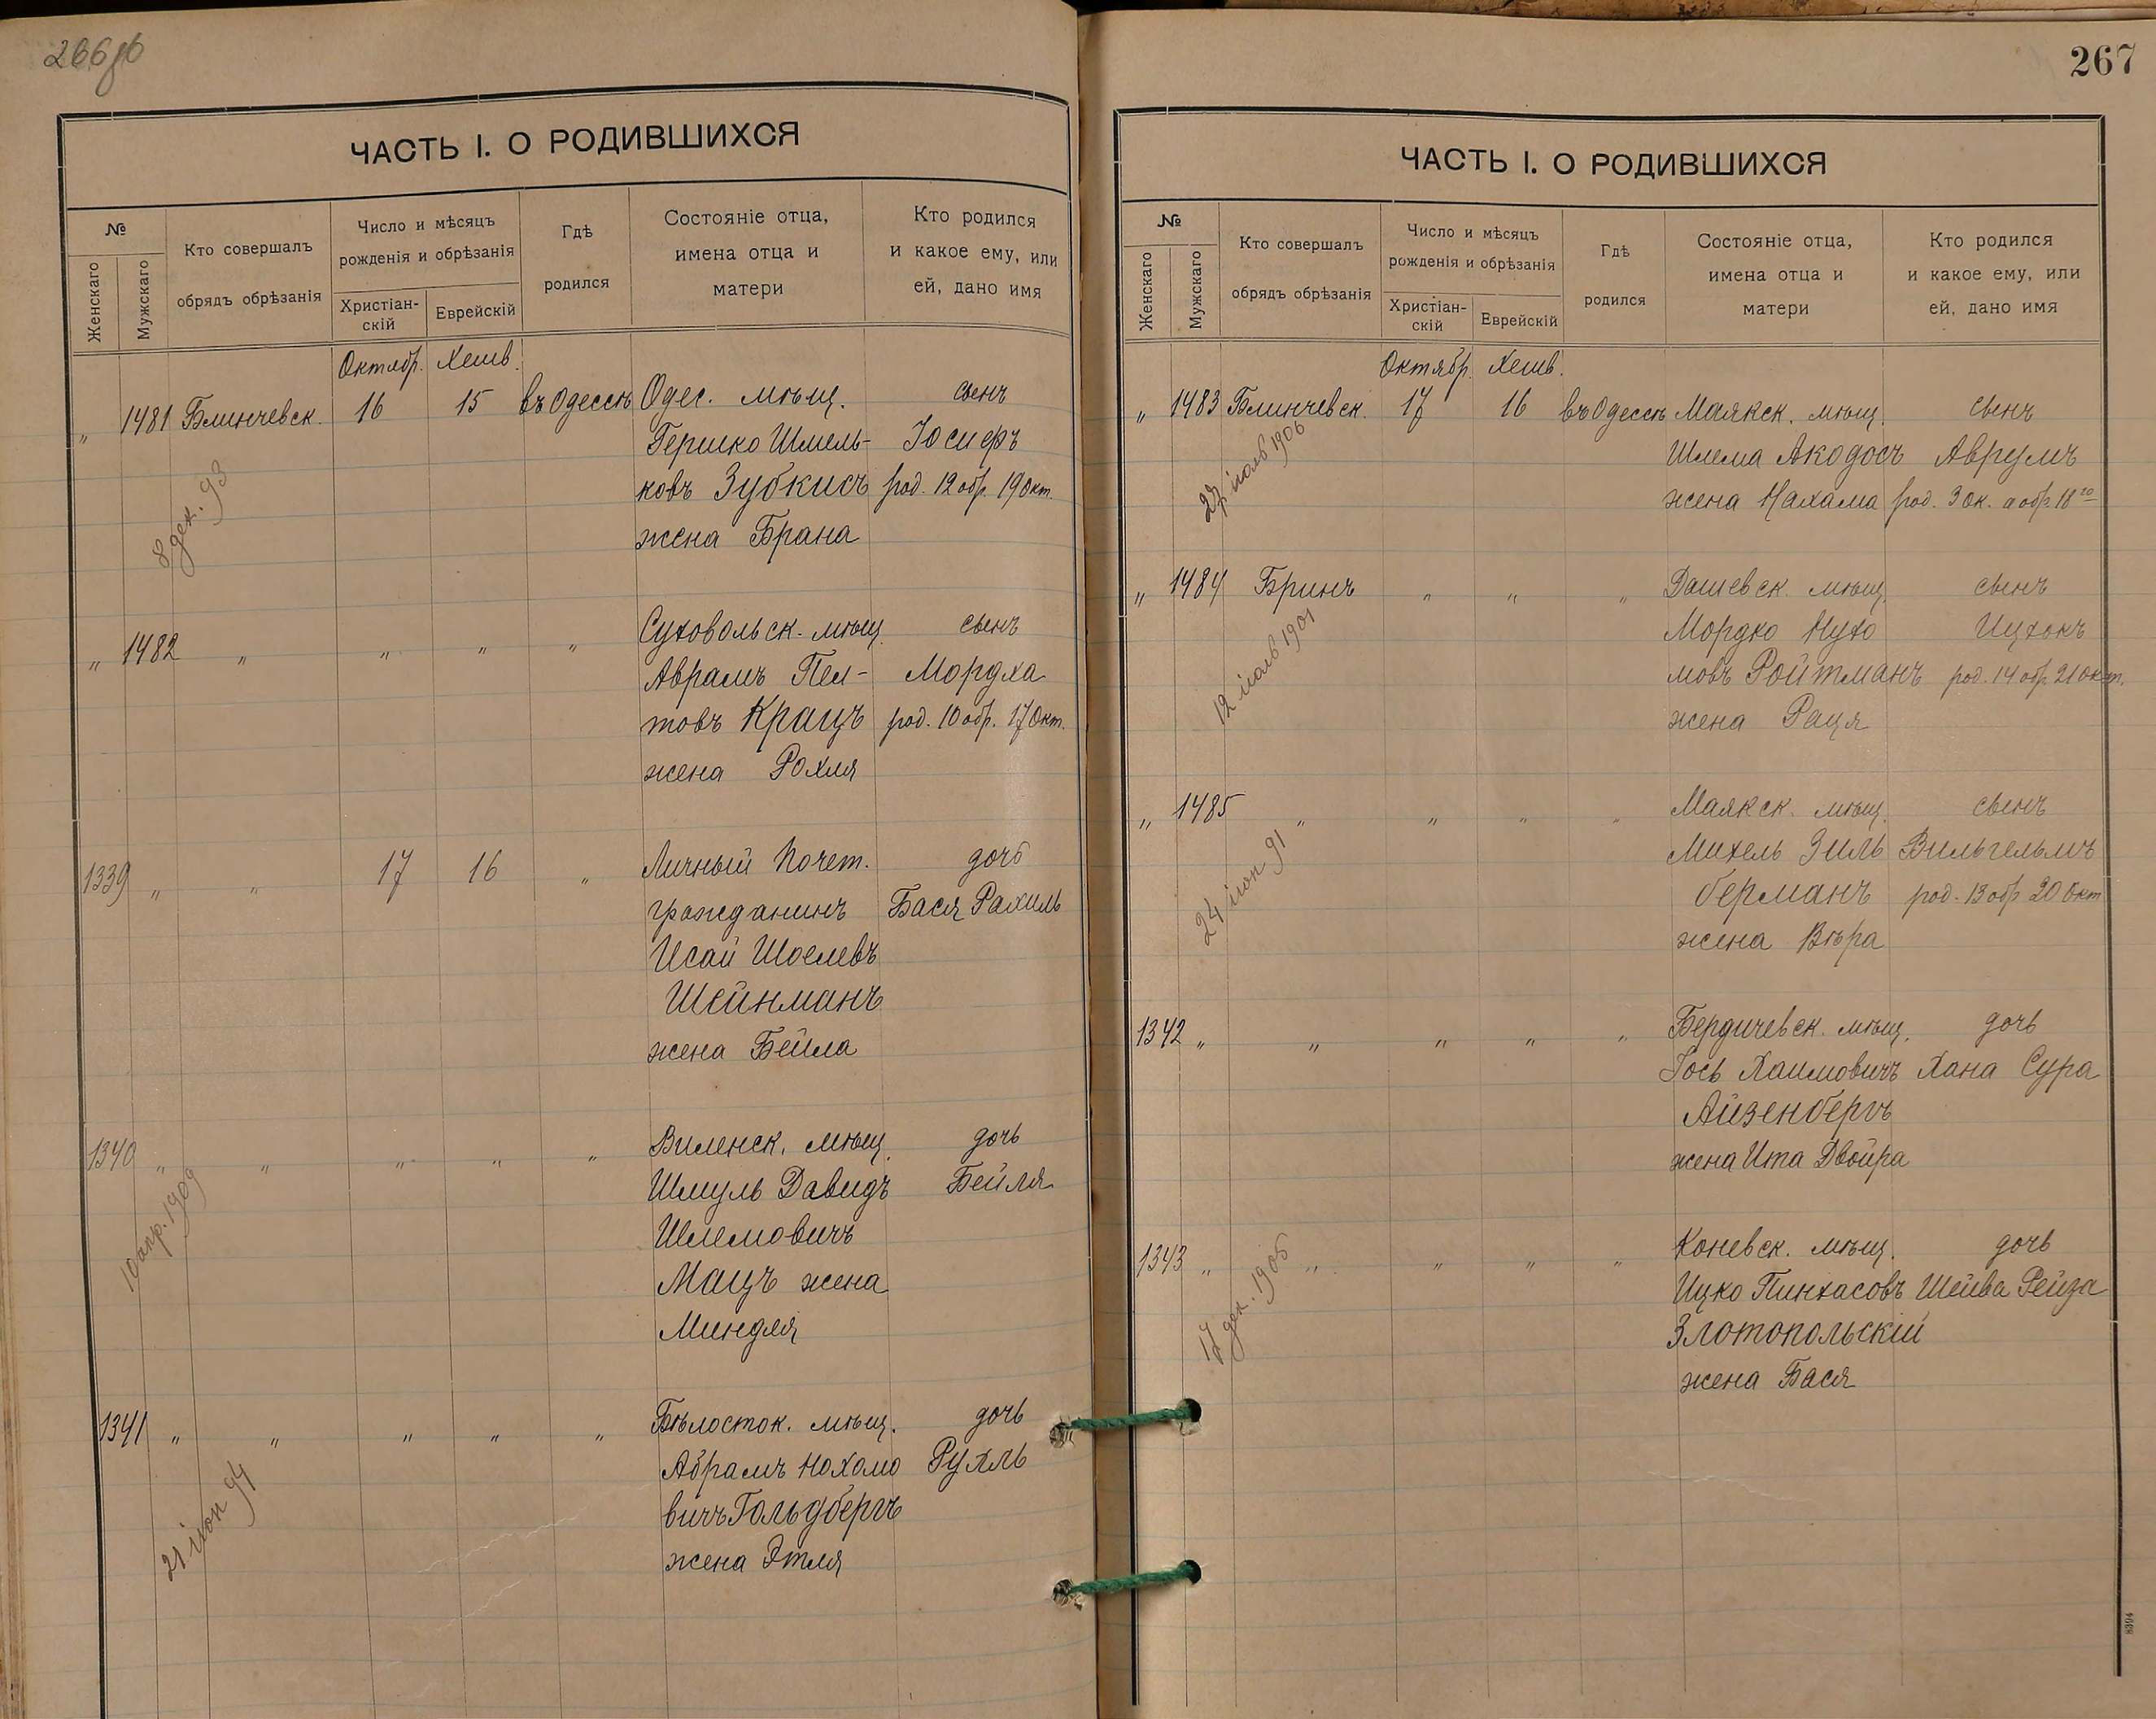 266об
ЧАСТЬ I. О РОДИВШИХСЯ
№
Женскаго
Мужскаго
Кто совершалъ
обрядъ обрѣзанія
Число и мѣсяцъ
рожденія и обрѣзанія
Христіан-
скій
Еврейскій
Гдѣ
родился
Состояніе отца,
имена отца и
матери
Кто родился
и какое ему, или
ей, дано имя
Октябр. Хешв.
„ 1481 Блинчевск. 16 15 въ Одессѣ Одес. мѣщ. сынъ
Гершко Шмель- Іосифъ
ковъ Зубкисъ род. 12 обр. 19 Окт.
жена Брана
8 дек. 93
„ 1482 „ „ „ „ Суховольск. мѣщ. сынъ
Аврамъ Пел- Мордха
товъ Крацъ род. 10 обр. 17 Окт.
жена Рохля
1339 „ „ 17 16 „ Личный Почет. дочь
гражданинъ Бася Рахиль
Исай Шоелевъ
Шейнманъ
жена Бейла
1340 „ „ „ „ „ Виленск. мѣщ. дочь
Шмуль Давидъ Бейля
Шлемовичъ
Мацъ жена
Миндля
10 апр. 1909
1341 „ „ „ „ „ Бѣлосток. мѣщ. дочь
Абрамъ Нохомо Рухль
вичъ Гольдбергъ
жена Этля
21 іюн 94
267
ЧАСТЬ I. О РОДИВШИХСЯ
№
Женскаго
Мужскаго
Кто совершалъ
обрядъ обрѣзанія
Число и мѣсяцъ
рожденія и обрѣзанія
Христіан-
скій
Еврейскій
Гдѣ
родился
Состояніе отца,
имена отца и
матери
Кто родился
и какое ему, или
ей, дано имя
Октябр. Хешв.
„ 1483 Блинчевск. 17 16 въ Одессѣ Маякск. мѣщ. сынъ
Шлема Акодосъ Аврумъ
жена Нахама род. 3 Ок. а обр. 18го
27 іюль 1906
„ 1484 Бринъ „ „ „ Дашевск. мѣщ. сынъ
Мордко Нухо Ицхокъ
мовъ Ройтманъ род. 14 обр. 21 окт.
жена Раця
12 іюль 1901
„ 1485 „ „ „ „ Маякск. мѣщ. сынъ
Михель Зиль Вильгельмъ
берманъ род. 13 обр 20 Окт
жена Вѣра
24 іюн 91
1342 „ „ „ „ „ Бердичевск. мѣщ. дочь
Іось Хаимовичъ Хана Сура
Айзенбергъ
жена Ита Двойра
1343 „ „ „ „ „ Коневск. мѣщ. дочь
Ицко Пинхасовъ Шейва Рейза
Златопольскій
жена Бася
17 дек. 1905
8394